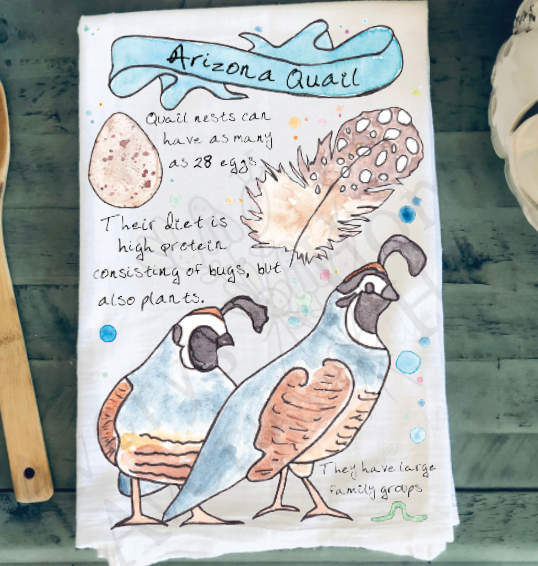 Arizona Quail
Quail nests can
have as many
as 28 eggs
Their diet is
high protein
consisting of bugs, but
also plants.
They have large
family groups